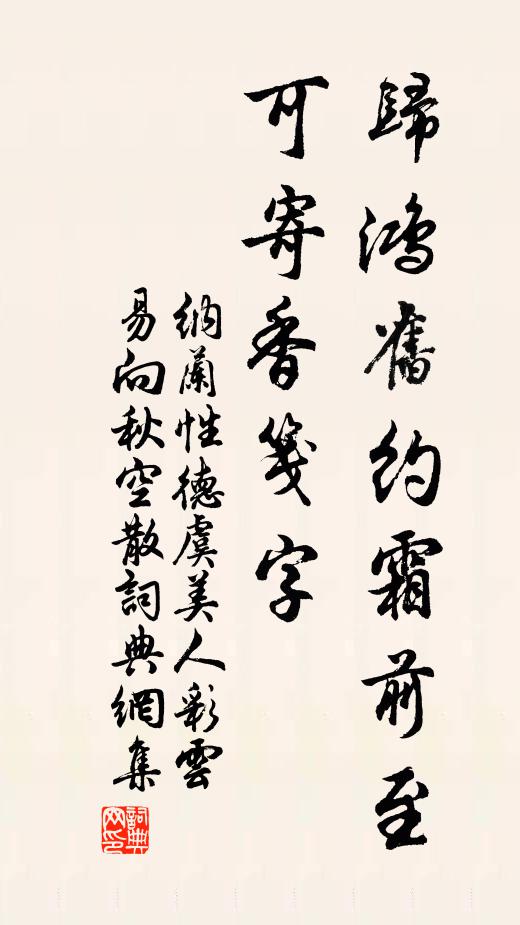 歸鴻舊約霜前至
可寄香箋字
納蘭性德虞美人彩雲
易向秋空散詞典網集
詞典網印